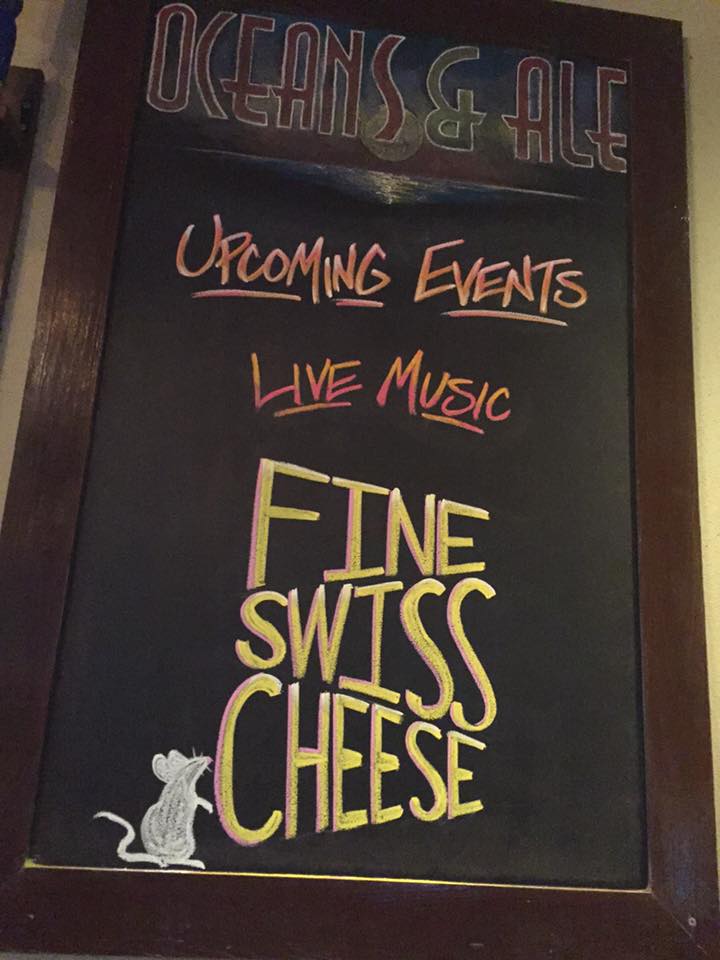 OCEANS & ALE
UPCOMING EVENTS
LIVE MUSIC
FINE
SWISS
CHEESE